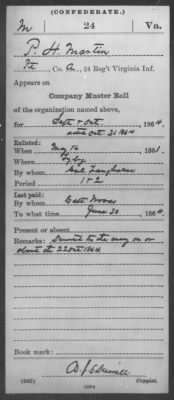 (CONFEDERATE.)
M 24 Va.
P. H. Martin
Pvt, Co. A, 24 Reg't Virginia Inf.
Appears on
Company Muster Roll
of the organization named above,
for Sept & Oct, 1864.
dated Oct 31 1864
Enlisted:
When May 14, 1861.
Where
By whom Col Langhorne
Period 1 & 2
Last paid:
By whom Capt Moore
To what time June 30, 1864.
Present or absent
Remarks: Deserted to the enemy on or
about the 22 Oct 1864
Book mark:
(642) Copyist.